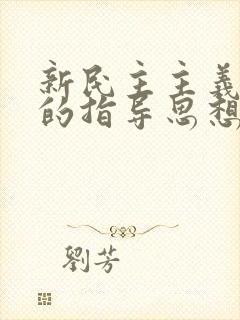 新民主主義
的指导思想
劉芳